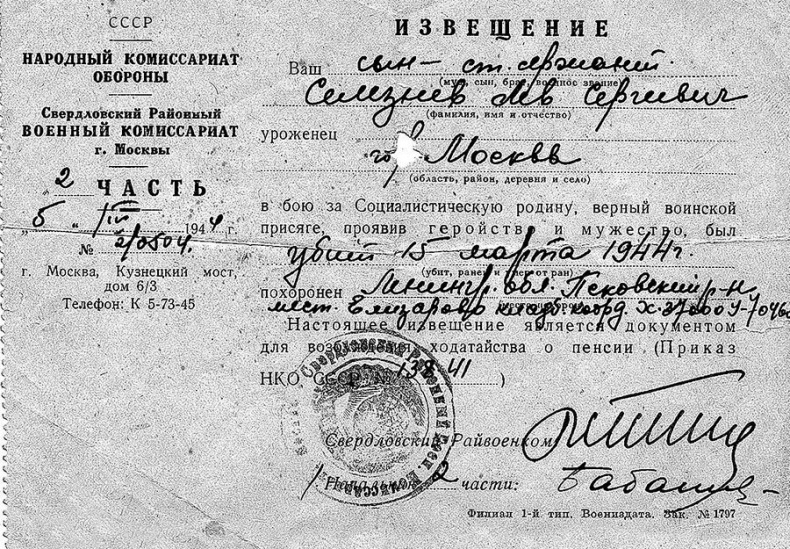 СССР
НАРОДНЫЙ КОМИССАРИАТ
ОБОРОНЫ
Свердловский Районный
ВОЕННЫЙ КОМИССАРИАТ
г. Москвы
2 ЧАСТЬ
1944 г.
№ 2/0504.
г. Москва, Кузнецкий мост,
дом 6/3
Телефон: К 5-73-45
ИЗВЕЩЕНИЕ
Ваш сын - ст. сержант
(муж, сын, брат, военное звание)
Селезнев Лев Сергеевич
(фамилия, имя и отчество)
уроженец
гор. Москва
(область, район, деревня и село)
в бою за Социалистическую родину, верный воинской
присяге, проявив геройство и мужество, был
убит 15 марта 1944 г.
(убит, ранен и умер от ран)
похоронен Ленингр. обл. Псковский р-н
мест. Елизарово кладб. коорд. Х-37600 У-70460
Настоящее извещение является документом
для возбуждения ходатайства о пенсии (Приказ
НКО СССР № 138-41)
Свердловский Райвоенком
Начальник 2 части:
Филиал 1-й тип. Воениздата. Зак. № 1797